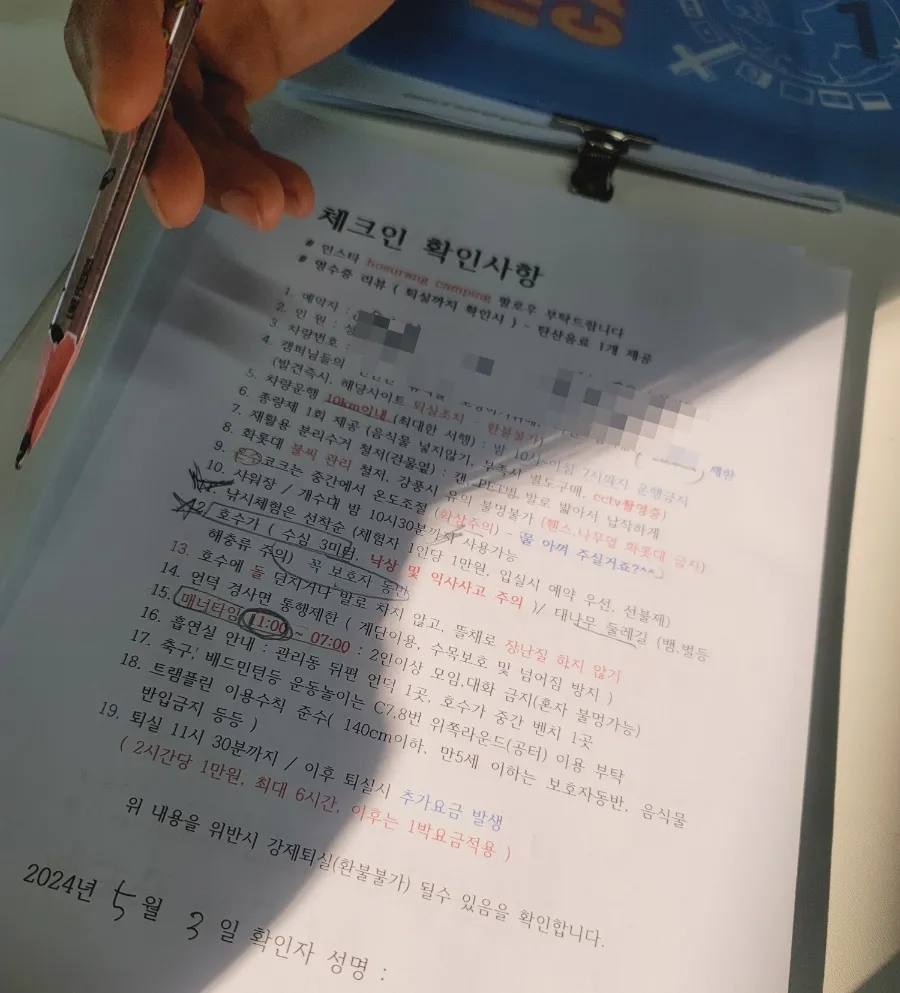 체크인 확인사항
# 인스타 hosurang camping 팔로우 부탁드립니다
# 영수증 리뷰 ( 퇴실까지 확인시 ) - 탄산음료 1개 제공
1. 예약자 :
2. 인 원 : 성
3. 차량번호 :
4. 캠퍼님들의
(발견즉시, 해당사이트 퇴실조치 - 환불불가)
5. 차량운행 10km이내 (최대한 서행) : 밤 10시~아침 7시까지 운행금지
6. 종량제 1회 제공 (음식물 넣지않기, 부족시 별도구매, cctv촬영중)
7. 재활용 분리수거 철저(건물옆) : 캔, PET병 발로 밟아서 납작하게
8. 화롯대 불씨 관리 철저, 강풍시 유의 불멍불가 (펜스,나무옆 화롯대 금지)
9. 코크는 중간에서 온도조절 (화상주의) - 물 아껴 주실거죠?^^
10. 샤워장 / 개수대 밤 10시30분까지 사용가능
11. 낚시체험은 선착순 (체험자 1인당 1만원, 입실시 예약 우선, 선불제)
12. 호수가 ( 수심 3미터, 낙상 및 익사사고 주의 )/ 대나무 둘레길 (뱀,벌등
해충류 주의) 꼭 보호자 동반
13. 호수에 돌 던지거나 발로 차지 않고, 뜰채로 장난질 하지 않기
14. 언덕 경사면 통행제한 ( 계단이용, 수목보호 및 넘어짐 방지 )
15. 매너타임 11:00 ~ 07:00 : 2인이상 모임,대화 금지(혼자 불멍가능)
16. 흡연실 안내 : 관리동 뒤편 언덕 1곳, 호수가 중간 벤치 1곳
17. 축구, 배드민턴등 운동놀이는 C7,8번 위쪽라운드(공터) 이용 부탁
18. 트램플린 이용수칙 준수( 140cm이하, 만5세 이하는 보호자동반, 음식물
반입금지 등등 )
19. 퇴실 11시 30분까지 / 이후 퇴실시 추가요금 발생
( 2시간당 1만원, 최대 6시간, 이후는 1박요금적용 )
위 내용을 위반시 강제퇴실(환불불가) 될수 있음을 확인합니다.
2024년 5월 3일 확인자 성명 :